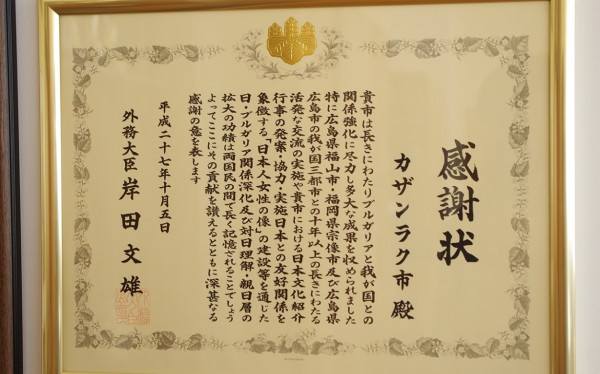 感謝状
カザンラク市 殿
貴市は長きにわたりブルガリアと我が国との
関係強化に尽力し多大な成果を収められました
特に広島県福山市・福岡県宗像市及び広島県
広島市の我が国三都市との十年以上の長きにわたる
活発な交流の実施や貴市における日本文化紹介
行事の発案・協力・実施日本との友好関係を
象徴する「日本人女性の像」の建設等を通じた
日・ブルガリア関係深化及び対日理解・親日層の
拡大の功績は両国民の間で長く記憶されることでしょう
よってここにその貢献を讃えるとともに深甚なる
感謝の意を表します
平成二十七年十月五日
外務大臣 岸田文雄